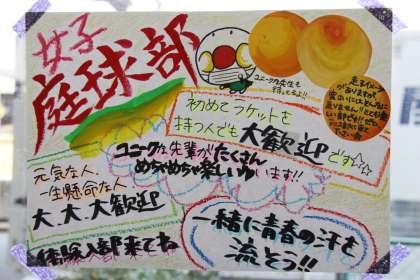 女子
庭球部
ユニークな先生も
待ってるよ!!
初めてラケットを
持つ人でも大歓迎です☆☆
ユニークな先輩がたくさん
めちゃめちゃ楽しいゆいます!!
元気な人、
一生懸命な人
大、大、大歓迎
体験入部来てね
一緒に青春の汗を
流そう!!